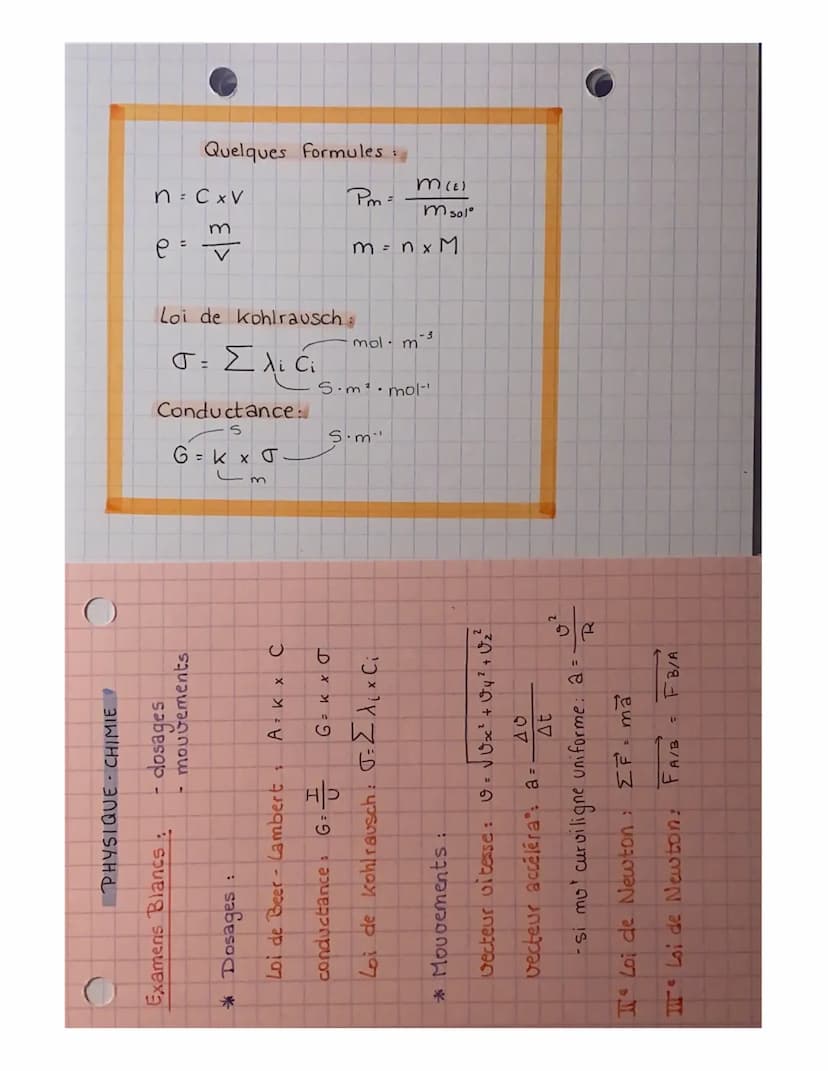 Quelques Formules :
n = C x V
Pm = m(E) / m sol°
ρ = m / V
m = n x M
Loi de Kohlrausch :
σ = Σ λi Ci
mol · m⁻³
S · m² · mol⁻¹
Conductance :
G = K x σ
S
m
S · m⁻¹
PHYSIQUE - CHIMIE
Examens Blancs : - dosages
- mouvements
* Dosages :
Loi de Beer - Lambert : A = K x C
conductance : G = I / U G = K x σ
Loi de Kohlrausch : σ = Σ λi x Ci
* Mouvements :
vecteur vitesse : v = √vx² + vy² + vz²
vecteur accéléra° : a = Δv / Δt
- si mvt curviligne uniforme : a = v² / R
IIe Loi de Newton : ΣF⃗ = ma⃗
IIIe Loi de Newton : F⃗ A/B = F⃗ B/A